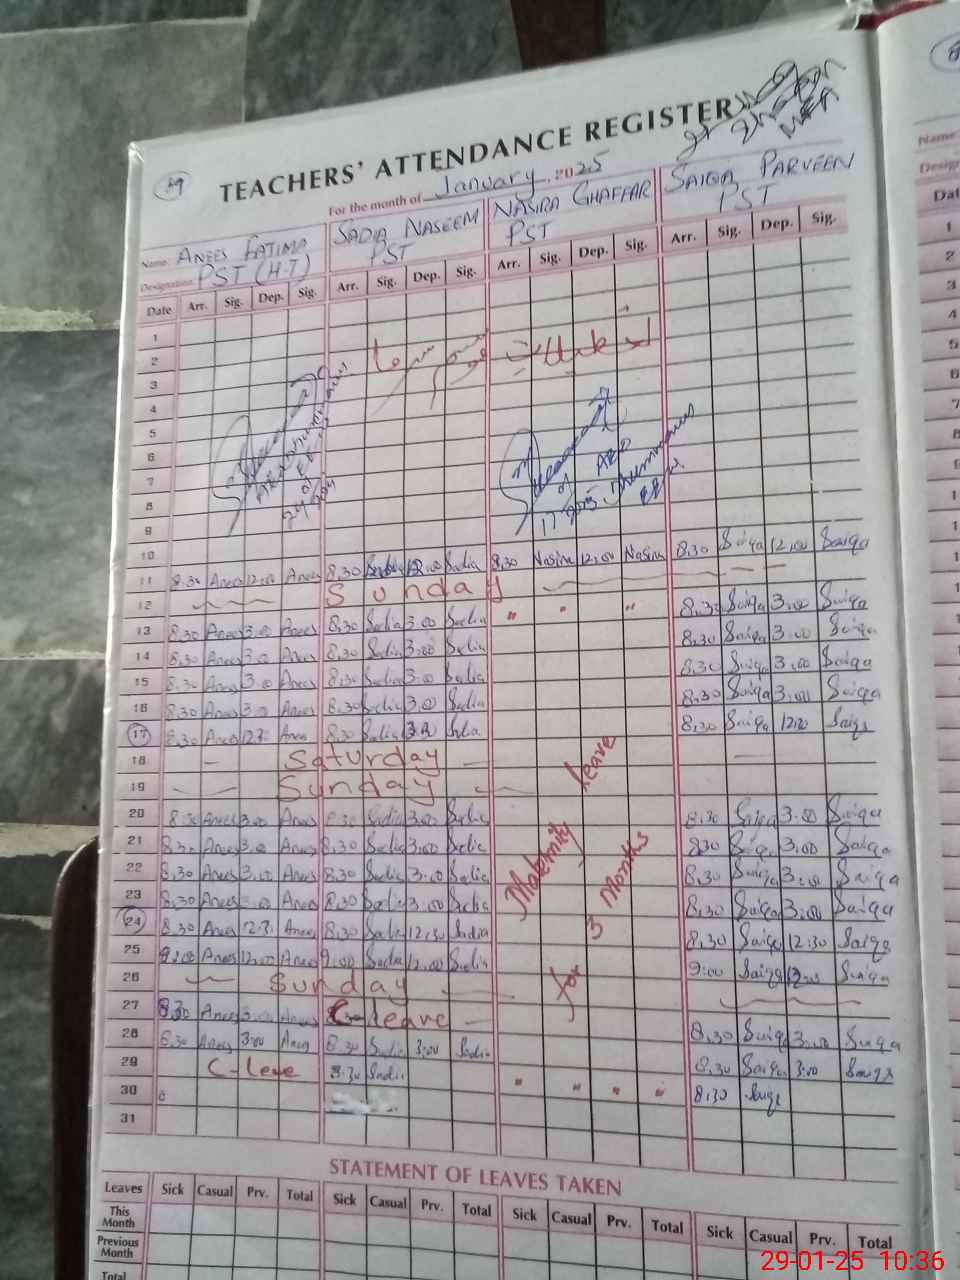 49
TEACHERS' ATTENDANCE REGISTER
For the month of January, 2025
Name ANEES FATIMA SADIA NASEEM NASIRA GHAFFAR SAIQA PARVEEN
Designation PST (H-T) PST PST PST
Date Arr. Sig. Dep. Sig. Arr. Sig. Dep. Sig. Arr. Sig. Dep. Sig. Arr. Sig. Dep. Sig.
1
2
3
4
5
6
7
8
9
10
11 8.30 Anees 12:00 Anees 8.30 Sadia 12:00 Sadia 8.30 Nasira 12:00 Nasira 8.30 Saiqa 12:00 Saiqa
12 Sunday
13 8.30 Anees 3:00 Anees 8.30 Sadia 3:00 Sadia " " " 8.30 Saiqa 3:00 Saiqa
14 8.30 Anees 3:00 Anees 8.30 Sadia 3:00 Sadia 8.30 Saiqa 3:00 Saiqa
15 8.30 Anees 3:00 Anees 8.30 Sadia 3:00 Sadia 8.30 Saiqa 3:00 Saiqa
16 8.30 Anees 3:00 Anees 8.30 Sadia 3:00 Sadia 8.30 Saiqa 3:00 Saiqa
17 8.30 Anees Anees 8.30 Sadia Sadia 8.30 Saiqa Saiqa
18 Saturday
19 Sunday
20 8:30 Anees 3:00 Anees 8:30 Sadia 3:00 Sadia 8:30 Saiqa 3:00 Saiqa
21 8.30 Anees 3:00 Anees 8.30 Sadia 3:00 Sadia 8.30 Saiqa 3:00 Saiqa
22 8.30 Anees 3:00 Anees 8.30 Sadia 3:00 Sadia 8.30 Saiqa 3:00 Saiqa
23 8.30 Anees 3:00 Anees 8.30 Sadia 3:00 Sadia 8.30 Saiqa 3:00 Saiqa
24 8.30 Anees Anees 8.30 Sadia 12:30 Sadia 8.30 Saiqa 12:30 Saiqa
25 9:00 Anees 12:00 Anees 9:00 Sadia 12:00 Sadia 9:00 Saiqa 12:00 Saiqa
26 Sunday
27 8.30 Anees 3:00 Anees C-leave 8.30 Saiqa 3:00 Saiqa
28 8.30 Anees 3:00 Anees 8.30 Sadia 3:00 Sadia 8.30 Saiqa 3:00 Saiqa
29 C-Leve 8.30 Sadia " " " " 8.30 Saiqa
30
31
Maternity leave
for 3 Months
STATEMENT OF LEAVES TAKEN
Leaves Sick Casual Prv. Total Sick Casual Prv. Total Sick Casual Prv. Total Sick Casual Prv. Total
This Month
Previous Month
Total
29-01-25 10:36